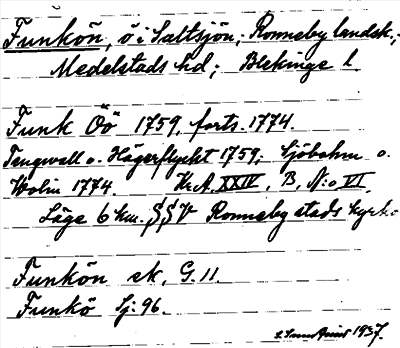 Funkön, ö i Saltsjön; Ronneby landsk.;
Medelstads hd; Blekinge l.
Funk Öö 1759, forts. 1774.
Tengwall o. Hägerflycht 1759; Sjöbohm o.
Wolin 1774. Kr.A. XXIV, B, N:o VI.
Läge 6 km. SSV Ronneby stads kyrk.
Funkön ek. G. 11.
Funkö Sj: 96.
1937.